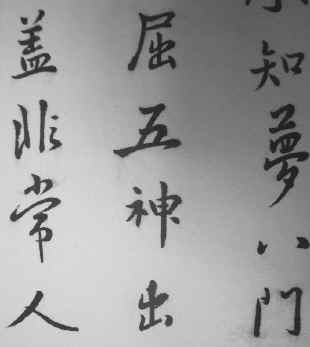 知夢八門
屈五神出
盖非常人